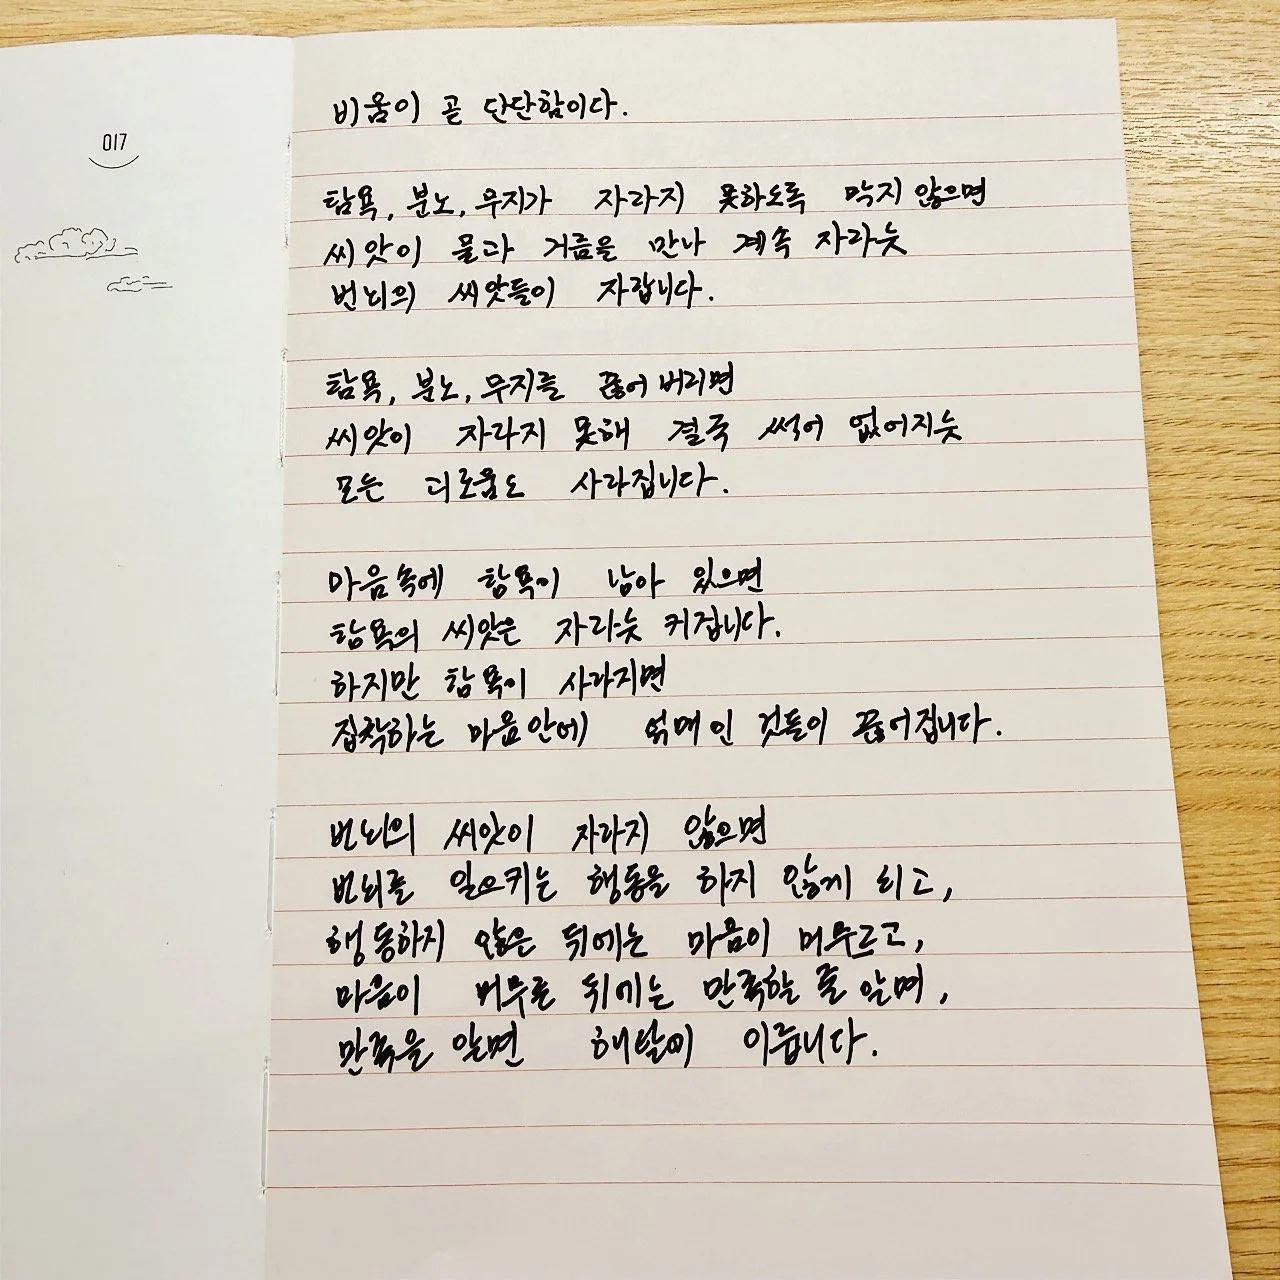 017
비움이 곧 단단함이다.
탐욕, 분노, 무지가 자라지 못하도록 막지 않으면
씨앗이 물과 거름을 만나 계속 자라듯
번뇌의 씨앗들이 자랍니다.
탐욕, 분노, 무지를 끊어 버리면
씨앗이 자라지 못해 결국 썩어 없어지듯
모든 괴로움도 사라집니다.
마음속에 탐욕이 남아 있으면
탐욕의 씨앗은 자라듯 커집니다.
하지만 탐욕이 사라지면
집착하는 마음안에 얽매인 것들이 끊어집니다.
번뇌의 씨앗이 자라지 않으면
번뇌를 일으키는 행동을 하지 않게 되고,
행동하지 않은 뒤에는 마음이 머무르고,
마음이 머무른 뒤에는 만족할 줄 알며,
만족을 알면 해탈에 이릅니다.